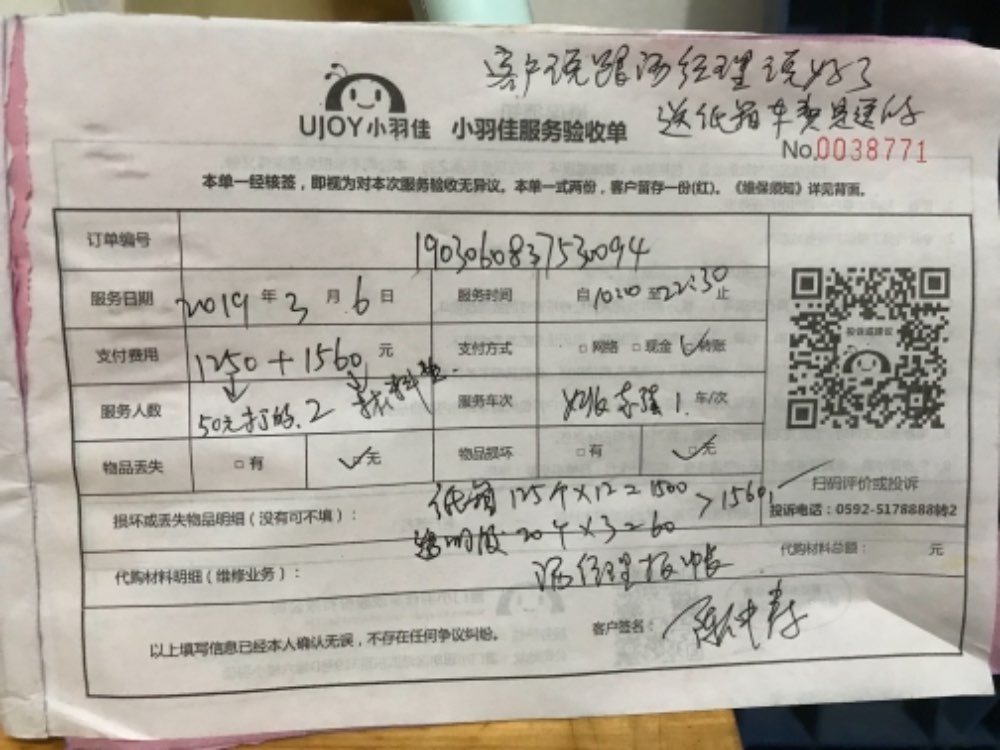 客户说跟汤经理说好了
送纸箱车费是送的
UJOY小羽佳 小羽佳服务验收单
No.0038771
本单一经核签，即视为对本次服务验收无异议。本单一式两份，客户留存一份(红)。《维保须知》详见背面。
订单编号 1903060837530094
服务日期 2019 年 3 月 6 日 服务时间 自 10:00 至 22:30 止
支付费用 1250+1560 元 支付方式 □ 网络 □ 现金 ☑ 转账
服务人数 50元打的. 2 服务车次 1. 车/次
物品丢失 □ 有 ☑ 无 物品损坏 □ 有 ☑ 无
投诉或建议
扫码评价或投诉
投诉电话：0592-5178888转2
损坏或丢失物品明细（没有可不填）： 纸箱 125个×12=1500 > 1560.
20个×3=60
代购材料明细（维修业务）： 汤经理报账 代购材料总额： 元
以上填写信息已经本人确认无误，不存在任何争议纠纷。 客户签名：